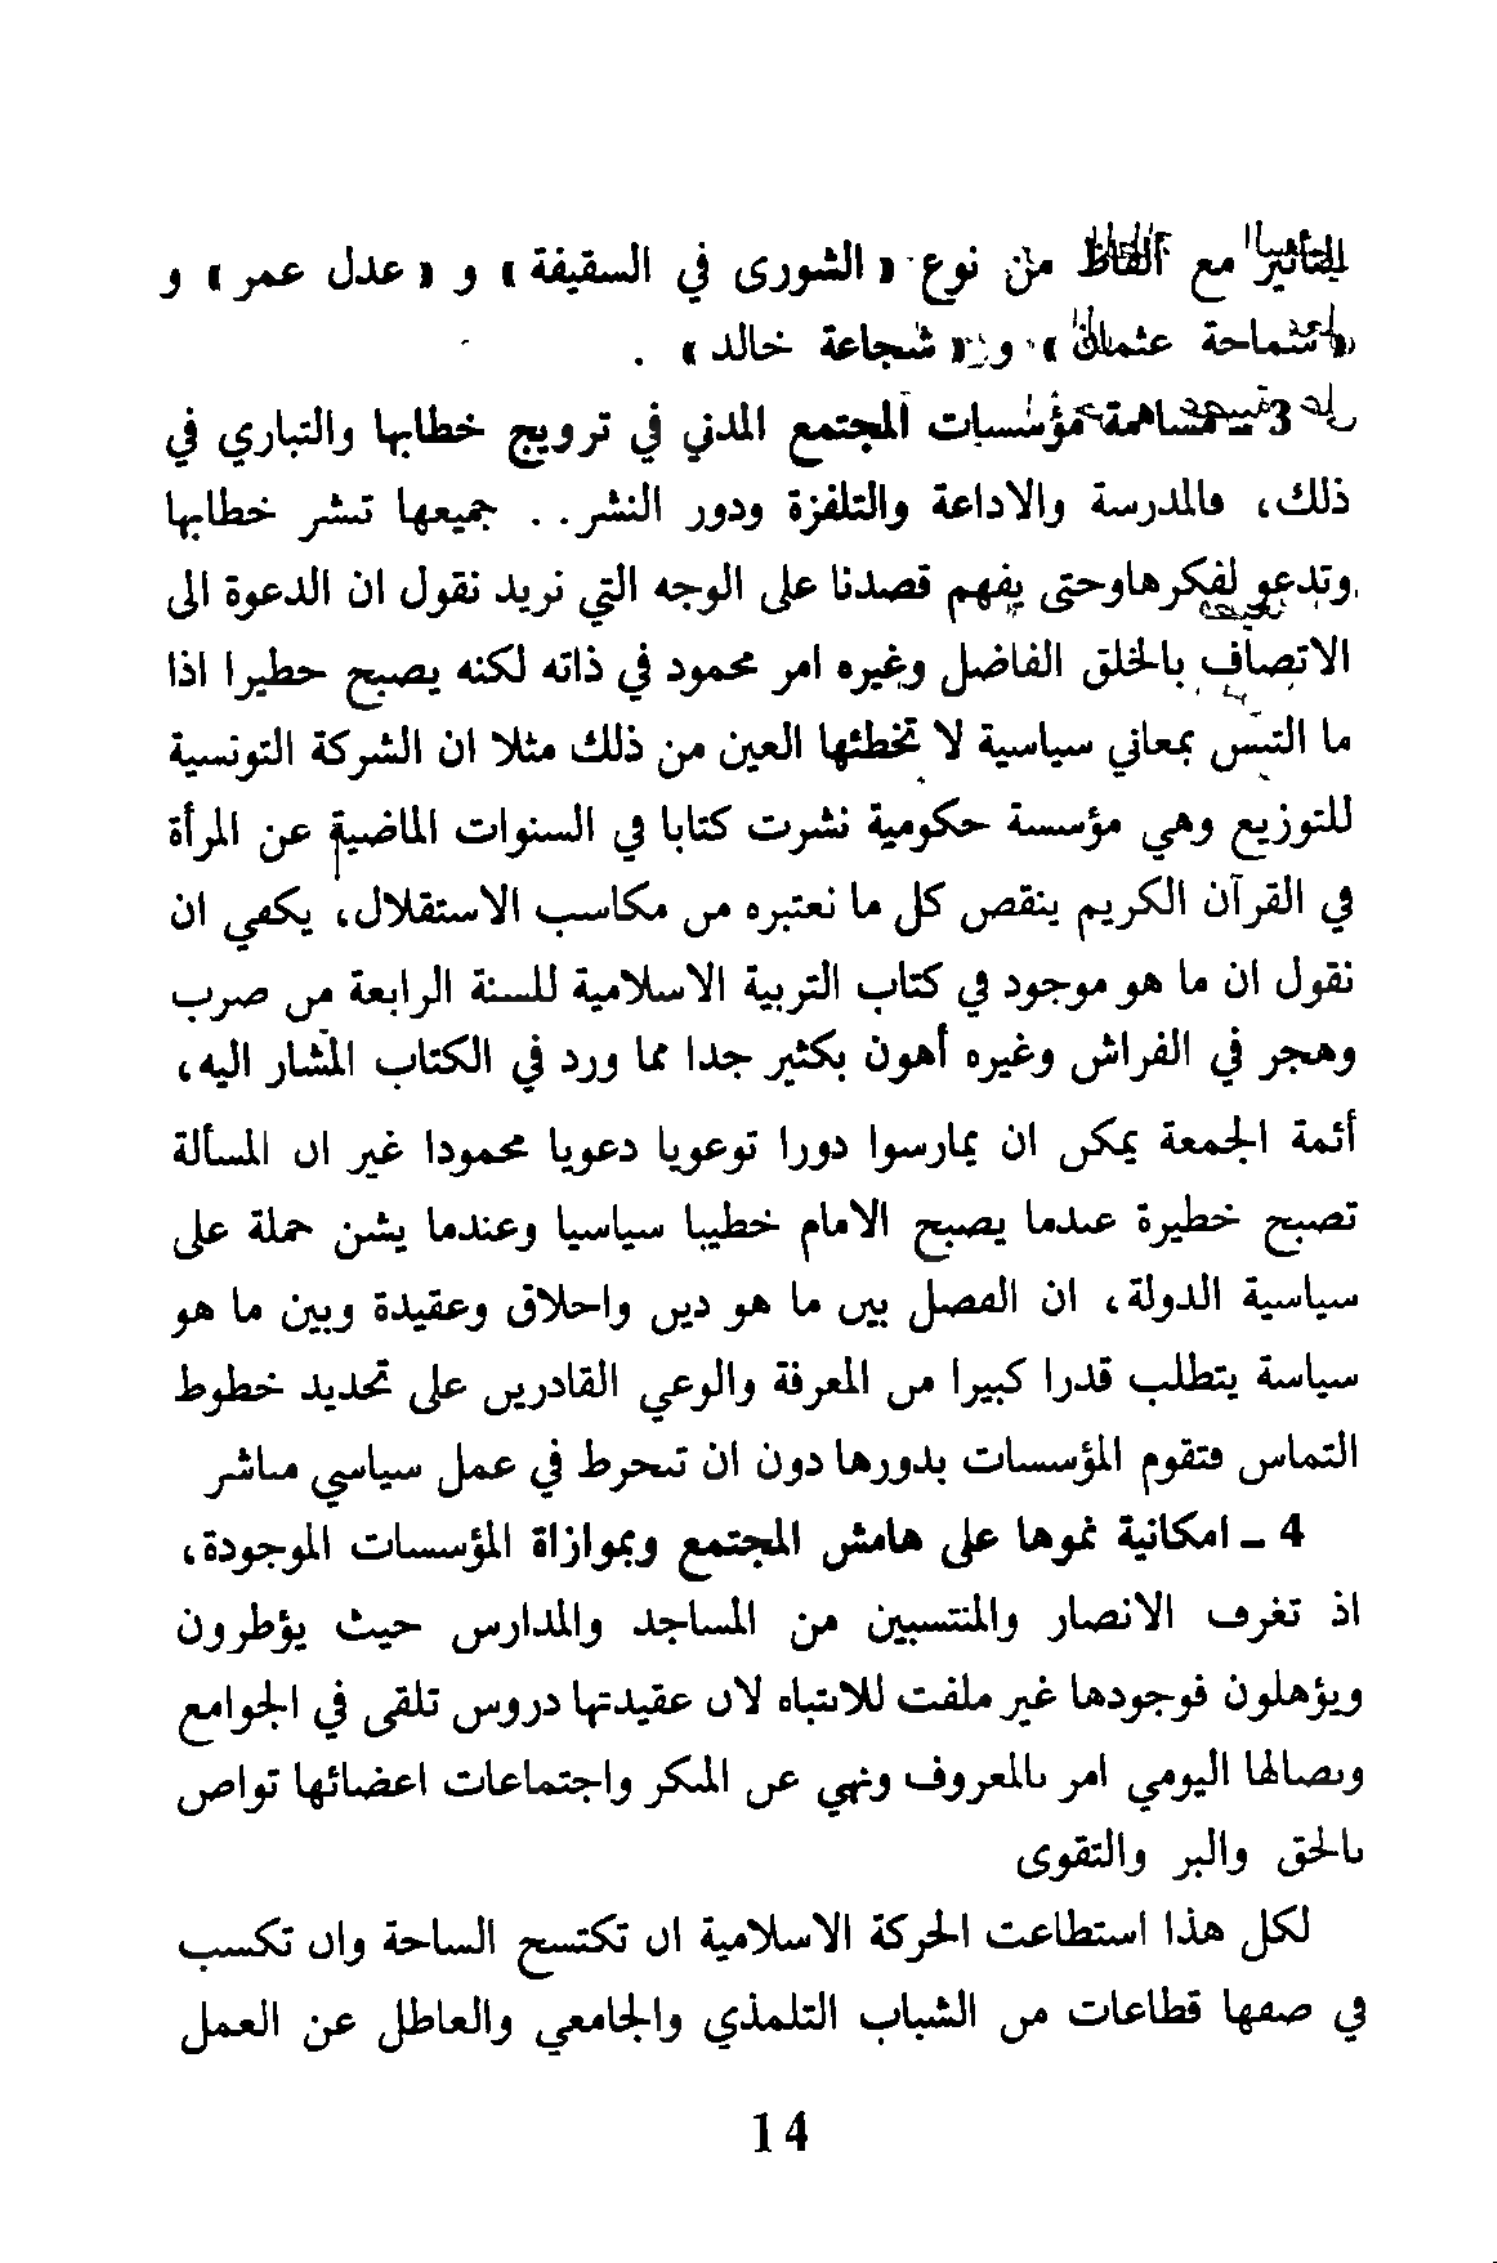 للتأثير مع ألفاظ من نوع « الشورى في السقيفة » و « عدل عمر » و
« سماحة عثمان » و « شجاعة خالد » .
3 ـ مساهمة مؤسسات المجتمع المدني في ترويج خطابها والتباري في
ذلك، فالمدرسة والاداعة والتلفزة ودور النشر .. جميعها تنشر خطابها
وتدعو لفكرهاوحتى يفهم قصدنا على الوجه التي نريد نقول ان الدعوة الى
الاتصاف بالخلق الفاضل وغيره امر محمود في ذاته لكنه يصبح خطيرا اذا
ما التبس بمعاني سياسية لا تخطئها العين من ذلك مثلا ان الشركة التونسية
للتوزيع وهي مؤسسة حكومية نشرت كتابا في السنوات الماضية عن المرأة
في القرآن الكريم ينقص كل ما نعتبره من مكاسب الاستقلال، يكفي ان
نقول ان ما هو موجود في كتاب التربية الاسلامية للسنة الرابعة من ضرب
وهجر في الفراش وغيره أهون بكثير جدا مما ورد في الكتاب المشار اليه،
أئمة الجمعة يمكن ان يمارسوا دورا توعويا دعويا محمودا غير ان المسألة
تصبح خطيرة عندما يصبح الامام خطيبا سياسيا وعندما يشن حملة على
سياسية الدولة، ان الفصل بين ما هو دين واخلاق وعقيدة وبين ما هو
سياسة يتطلب قدرا كبيرا من المعرفة والوعي القادرين على تحديد خطوط
التماس فتقوم المؤسسات بدورها دون ان تنخرط في عمل سياسي مباشر
4 ـ امكانية نموها على هامش المجتمع وبموازاة المؤسسات الموجودة،
اذ تغرف الانصار والمنتسبين من المساجد والمدارس حيث يؤطرون
ويؤهلون فوجودها غير ملفت للانتباه لان عقيدتها دروس تلقى في الجوامع
ونضالها اليومي امر بالمعروف ونهي عن المنكر واجتماعات اعضائها تواص
بالحق والبر والتقوى
لكل هذا استطاعت الحركة الاسلامية ان تكتسح الساحة وان تكسب
في صفها قطاعات من الشباب التلمذي والجامعي والعاطل عن العمل
14